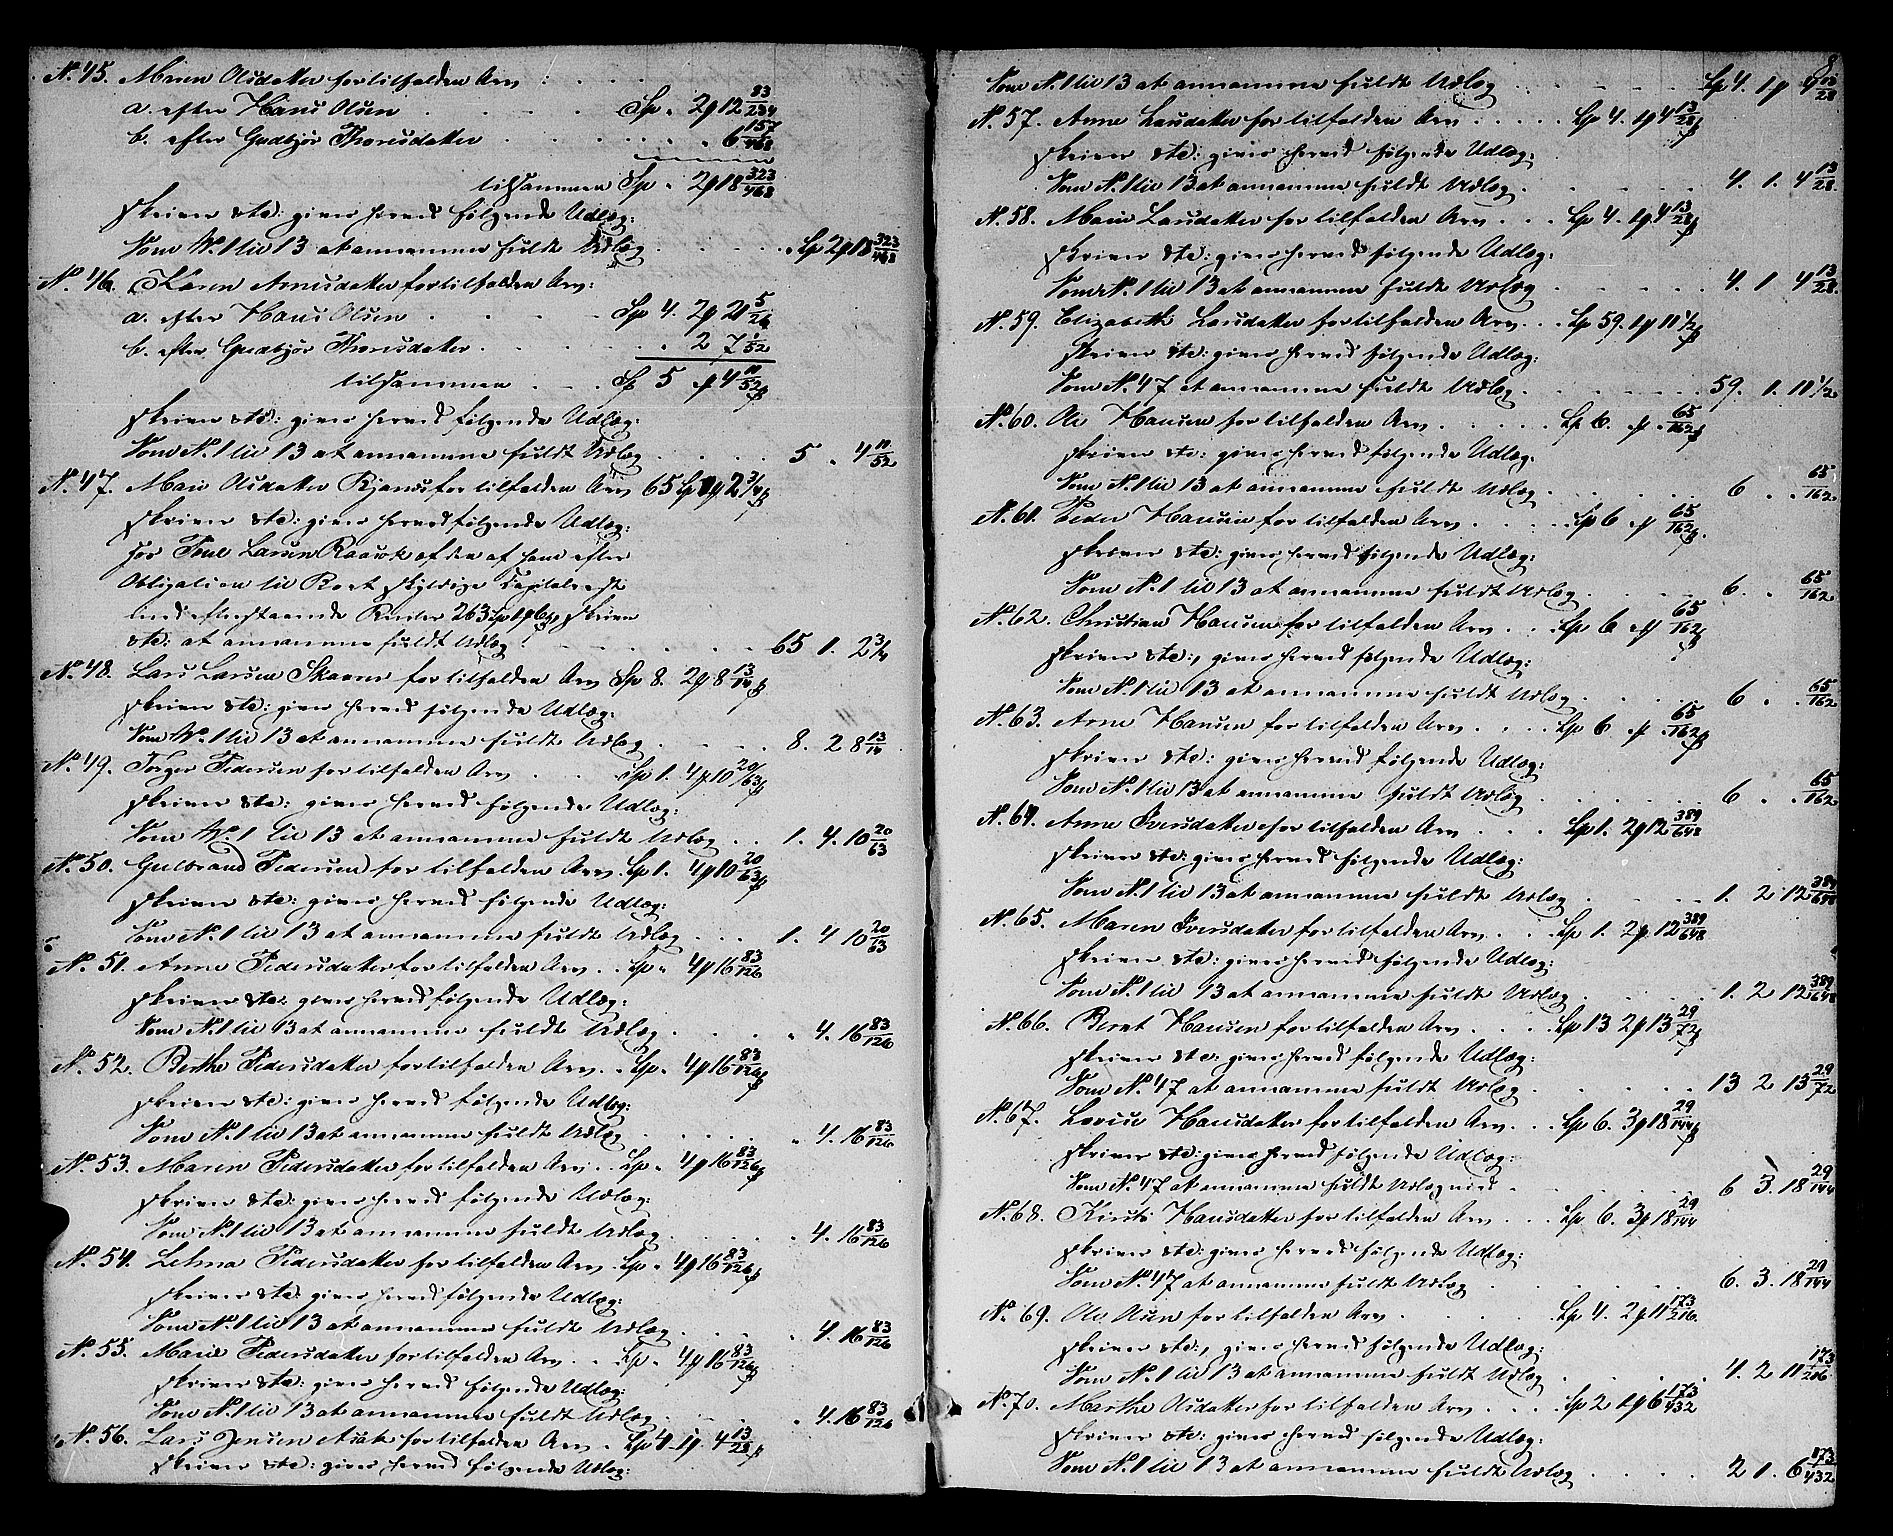 No. 45. Maren Olsdatter for tilfalden Arv :
a. efter Hans Olsen Sp „ 2 12 83/234
b. efter Gudbjør Thoresdatter „ 6 157/468
tilsammen Sp „ 2 18 323/468
skriver etc: gives herved følgende Udlæg:
Som No. 1 til 13 at annamme fuldt Udlæg „ Sp 2 18 323/468
No. 46. Karen Arnesdatter for tilfalden Arv:
a. efter Hans Olsen Sp 4. 2 21 5/26
b. efter Gudbjør Thoresdatter „ 2 7 1/52
tilsammen Sp 5 „ 4 11/52
skriver etc: gives herved følgende Udlæg:
Som No. 1 til 13 at annamme fuldt Udlæg 5 „ 4 11/52
No. 47. Mari Olsdatter for tilfalden Arv 65 Sp 1 2 3/4
skriver etc: gives herved følgende Udlæg:
hos Poul Larsen af den af ham efter
Obligation til Boet skyldige Capitalrest
med efterstaaende Renter 263 Sp skriver
etc: at annamme fuldt Udlæg 65 1. 2 3/4
No. 48. Lars Larsen for tilfalden Arv Sp 8. 2 8 13/14
skriver etc: gives herved følgende Udlæg:
Som No. 1 til 13 at annamme fuldt Udlæg 8. 2 8 13/14
No. 49. Torger Pedersen for tilfalden Arv Sp 1. 4 10 20/63
skriver etc: gives herved følgende Udlæg:
Som No. 1 til 13 at annamme fuldt Udlæg 1. 4. 10 20/63
No. 50. Gulbrand Pedersen for tilfalden Arv Sp 1. 4 10 20/63
skriver etc: gives herved følgende Udlæg:
Som No. 1 til 13 at annamme fuldt Udlæg 1. 4 10 20/63
No. 51. Anne Pedersdatter for tilfalden Arv Sp „ 4 16 83/126
skriver etc: gives herved følgende Udlæg:
Som No. 1 til 13 at annamme fuldt Udlæg „ 4. 16 83/126
No. 52. Berthe Pedersdatter for tilfalden Arv Sp „ 4 16 83/126
skriver etc: gives herved følgende Udlæg:
Som No. 1 til 13 at annamme fuldt Udlæg „ 4. 16 83/126
No. 53. Maren Pedersdatter for tilfalden Arv Sp „ 4 16 83/126
skriver etc: gives herved følgende Udlæg:
Som No. 1 til 13 at annamme fuldt Udlæg „ 4. 16 83/126
No. 54. Lehna Pedersdatter for tilfalden Arv Sp „ 4 16 83/126
skriver etc. gives herved følgende Udlæg:
Som No. 1 til 13 at annamme fuldt Udlæg „ 4. 16 83/126
No. 55. Marie Pedersdatter for tilfalden Arv Sp „ 4 16 83/126
skriver etc: gives herved følgende Udlæg:
Som No. 1 til 13 at annamme fuldt Udlæg „ 4. 16 83/126
No. 56. Lars Jensen for tilfalden Arv Sp 4. 1 4 13/28
skriver etc: gives herved følgende Udlæg:
8
Som No. 1 til 13 at annamme fuldt Udlæg Sp 4. 1 4 13/28
No. 57. Anne Larsdatter for tilfalden Arv Sp 4. 1 4 13/28
skriver etc: gives herved følgende Udlæg:
Som No. 1 til 13 at annamme fuldt Udlæg. 4. 1. 4 13/28
No. 58. Marie Larsdatter for tilfalden Arv Sp 4. 1 4 13/28
skriver etc: gives herved følgende Udlæg:
Som No. 1 til 13 at annamme fuldt Udlæg 4. 1 4 13/28
No. 59. Elizabeth Larsdatter for tilfalden Arv Sp 59. 1 11 1/2
skriver etc: gives herved følgende Udlæg:
Som No. 47 at annamme fuldt Udlæg. 59. 1. 11 1/2
No. 60. Ole Hansen for tilfalden Arv Sp 6. „ „ 65/162
skriver etc: gives herved følgende Udlæg.
Som No. 1 til 13 at annamme fuldt Udlæg 6 „ „ 65/162
No. 61. Peder Hansen for tilfalden Arv Sp 6 „ 65/162
skriver etc: gives herved følgende Udlæg:
Som No. 1 til 13 at annamme fuldt Udlæg 6. „ 65/162
No. 62. Christian Hansen for tilfalden Arv Sp 6 „ 65/162
skriver etc:, gives herved følgende Udlæg:
Som No. 1 til 13 at annamme fuldt Udlæg 6 „ „ 65/162
No. 63. Arne Hansen for tilfalden Arv Sp 6 „ „ 65/162
skriver etc: gives herved følgende Udlæg:
Som No. 1 til 13 at annamme fuldt Udlæg 6 „ „ 65/162
No. 64. Anne Iversdatter for tilfalden Arv Sp 1. 2 12 389/648
skriver etc: gives herved følgende Udlæg:
Som No. 1 til 13 at annamme fuldt Udlæg 1. 2 12 389/648
No. 65. Maren Iversdatter for tilfalden Arv Sp 1. 2 12 389/648
skriver etc: gives herved følgende Udlæg:
Som No. 1 til 13 at annamme fuldt Udlæg 1. 2 12 389/648
No. 66. Bernt Hansen for tilfalden Arv Sp 13 2 13 29/72
skriver etc: gives herved følgende Udlæg:
Som No. 47 at annamme fuldt Udlæg 13 2 13 29/72
No. 67. Lovise Hansdatter for tilfalden Arv Sp 6. 3 18 29/144
skriver etc: gives herved følgende Udlæg:
Som No. 47 at annamme fuldt Udlæg med 6 3. 18 29/144
No. 68. Kirsti Hansdatter for tilfalden Arv Sp 6. 3 18 29/144
skriver etc: gives herved følgende Udlæg:
Som No. 47 at annamme fuldt Udlæg 6. 3. 18 29/144
No. 69. Ole Olsen for tilfalden Arv Sp 4. 2 11 173/216
skriver etc:, gives herved følgende Udlæg:
Som No. 1 til 13 at annamme fuldt Udlæg 4. 2 11 173/216
No. 70. Marthe Olsdatter for tilfalden Arv Sp 2 1 6 173/432
skriver etc: gives herved følgende Udlæg:
Som No. 1 til 13 at annamme fuldt Udlæg 2 1. 6 173/432